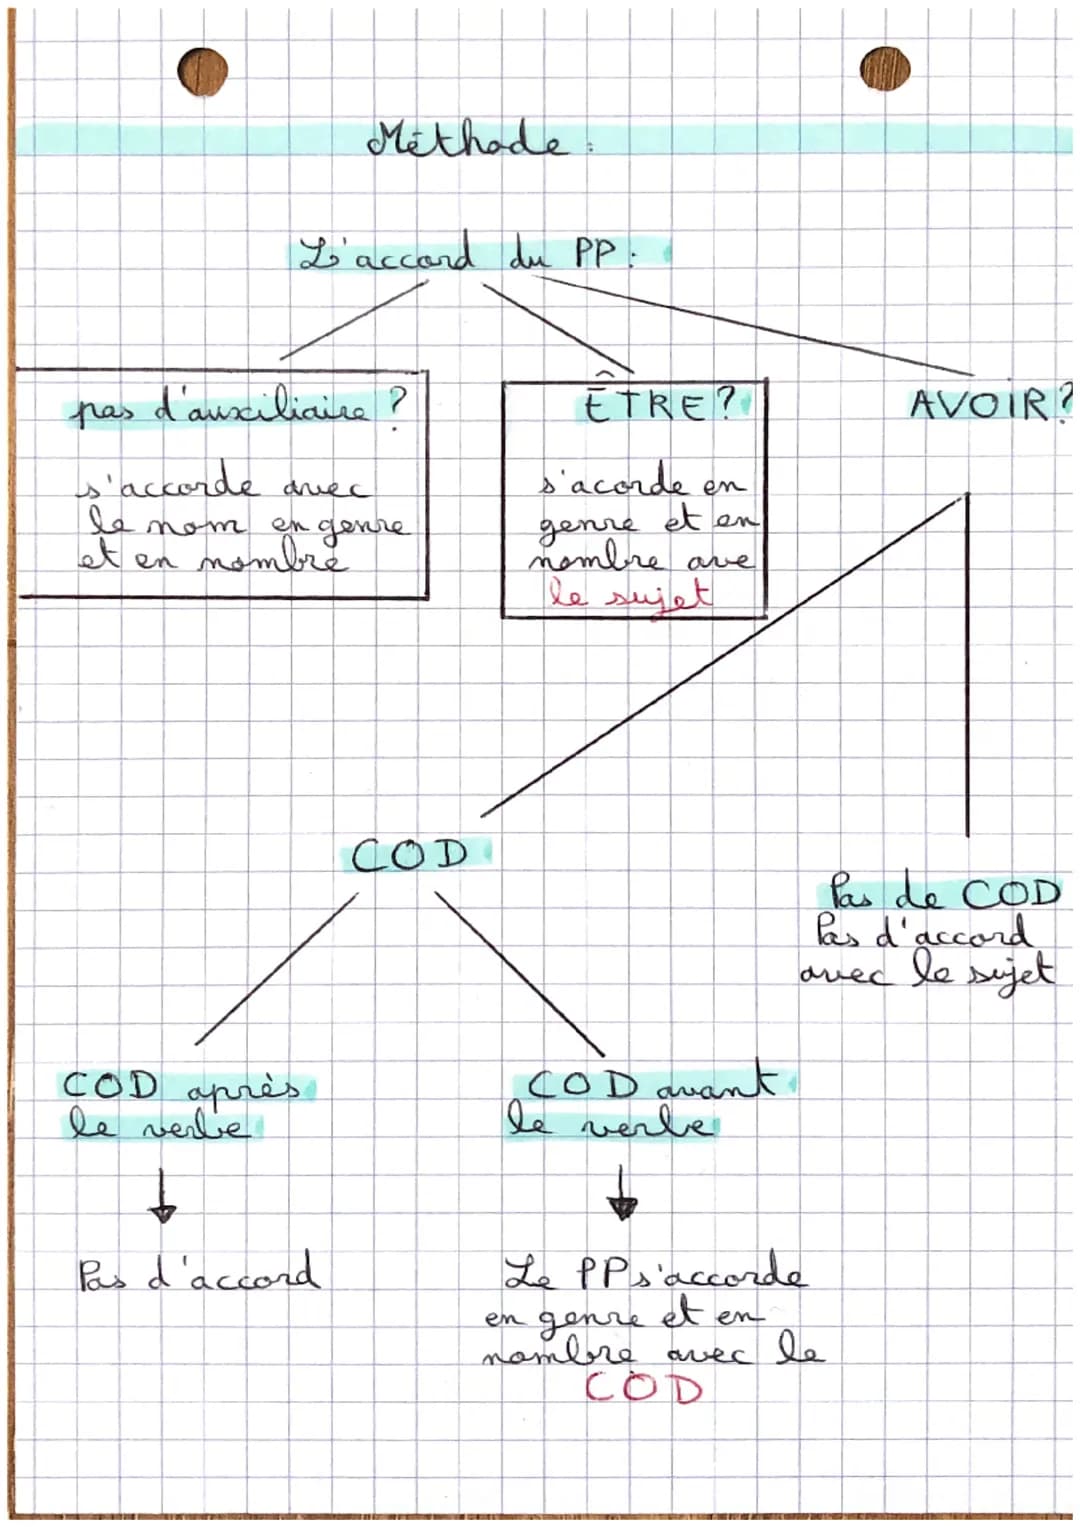 Méthode :
L'accord du PP :
pas d'auxiliaire ?
s'accorde avec
le nom en genre
et en nombre
ÊTRE ?
s'acorde en
genre et en
nombre ave
le sujet
AVOIR ?
COD
Pas de COD
Pas d'accord
avec le sujet
COD après
le verbe
Pas d'accord
COD avant
le verbe
Le PP s'accorde
en genre et en
nombre avec le
COD